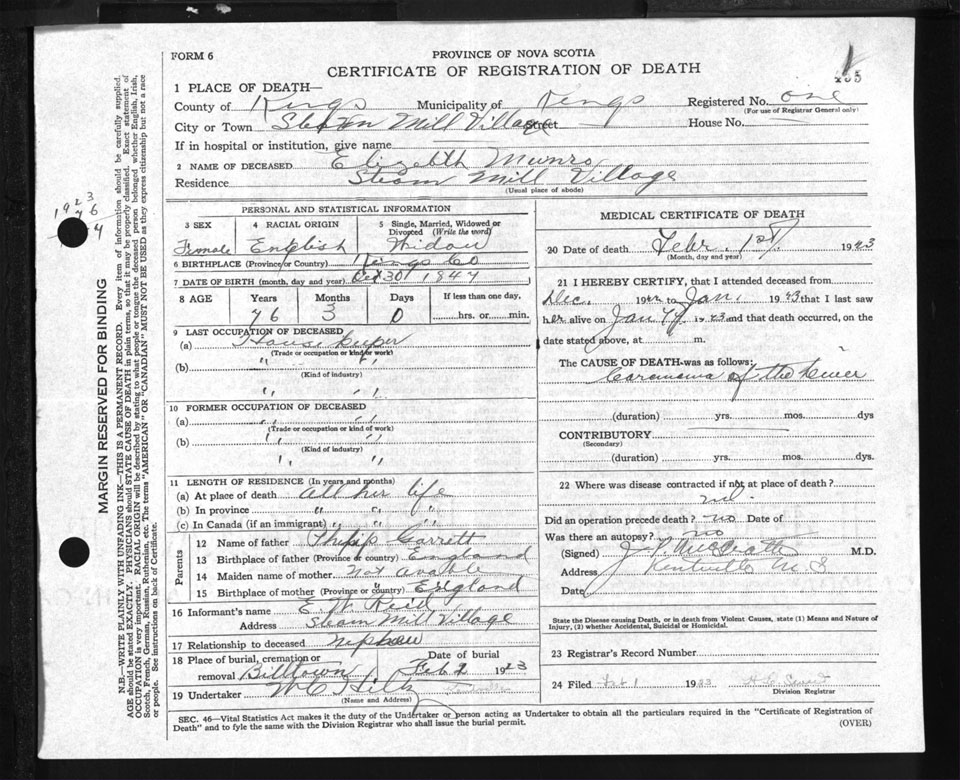 FORM 6
PROVINCE OF NOVA SCOTIA
CERTIFICATE OF REGISTRATION OF DEATH
1 PLACE OF DEATH—
County of Kings Municipality of Kings Registered No. one
(For use of Registrar General only)
City or Town Steam Mill Village Street House No.
If in hospital or institution, give name
2 NAME OF DECEASED Elizebth Munro
Residence Steam Mill Village
(Usual place of abode)
PERSONAL AND STATISTICAL INFORMATION
3 SEX 4 RACIAL ORIGIN 5 Single, Married, Widowed or Divorced (Write the word)
Female English Widow
6 BIRTHPLACE (Province or Country) Kings Co
7 DATE OF BIRTH (month, day and year) Oct 30 1847
8 AGE Years Months Days If less than one day,
76 3 0 hrs. or min.
9 LAST OCCUPATION OF DECEASED
(a) House keeper
(Trade or occupation or kind or work)
(b) " "
(Kind of industry)
" "
10 FORMER OCCUPATION OF DECEASED
(a) " "
(Trade or occupation or kind of work)
(b) " "
(Kind of industry)
" "
11 LENGTH OF RESIDENCE (In years and months)
(a) At place of death all her life
(b) In province " " "
(c) In Canada (if an immigrant) " " "
Parents
12 Name of father Garrett
13 Birthplace of father (Province or country) England
14 Maiden name of mother not avable
15 Birthplace of mother (Province or country) England
16 Informant's name E. W. Reid
Address Steam Mill Village
17 Relationship to deceased nephew
18 Place of burial, cremation or removal Billtown Date of burial Feb 2 1923
19 Undertaker W C
(Name and Address)
MEDICAL CERTIFICATE OF DEATH
20 Date of death Febr. 1st 1923
(Month, day and year)
21 I HEREBY CERTIFY, that I attended deceased from
Dec. 1922 to Jan. 1923 that I last saw
her alive on Jan 1923 and that death occurred, on
date stated above, at m.
The CAUSE OF DEATH was as follows:
Carcinoma of the Liver
(duration) yrs. mos. dys
CONTRIBUTORY
(Secondary)
(duration) yrs. mos. dys.
22 Where was disease contracted if not at place of death?
Did an operation precede death? no Date of
Was there an autopsy? no
(Signed) M.D.
Address Kentville N S
Date
State the Disease causing Death, or in death from Violent Causes, state (1) Means and Nature of
Injury, (2) whether Accidental, Suicidal or Homicidal.
23 Registrar's Record Number
24 Filed Feb 1 1923
Division Registrar
SEC. 46—Vital Statistics Act makes it the duty of the Undertaker or person acting as Undertaker to obtain all the particulars required in the "Certificate of Registration of
Death" and to fyle the same with the Division Registrar who shall issue the burial permit. (OVER)
MARGIN RESERVED FOR BINDING
N.B.—WRITE PLAINLY WITH UNFADING INK—THIS IS A PERMANENT RECORD. Every item of information should be carefully supplied.
AGE should be stated EXACTLY. PHYSICIANS should STATE CAUSE OF DEATH in plain terms, so that it may be properly classified. Exact statement of
OCCUPATION is very important. RACIAL ORIGIN will be described by stating to what people or tongue the deceased person belonged whether English, Irish,
Scotch, French, German, Russian, Ruthenian, etc. The terms "AMERICAN" OR "CANADIAN" MUST NOT BE USED as they express citizenship but not a race
or people. See instructions on back of Certificate.
1923
76